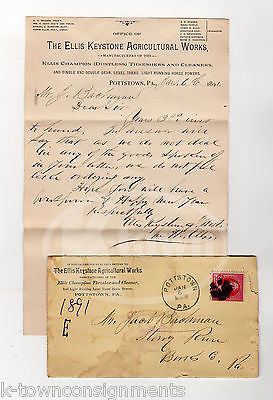 OFFICE OF
The Ellis Keystone Agricultural Works,
MANUFACTURERS OF THE
Ellis Champion (Dustless) Threshers and Cleaners,
AND SINGLE AND DOUBLE GEAR, LEVEL TREAD, LIGHT RUNNING HORSE POWERS.
POTTSTOWN, PA., 1891
Mr. J. Bachman
Dear Sir
Yours 3rd inst
to hand, In answer will
say that as we do not deal
in any of the goods spoken of
we do not feel
like ordering any
Hope you will have a
prosperous & Happy New Year
Respectfully
Ellis Keystone
The Ellis Keystone Agricultural Works
MANUFACTURERS OF THE
Ellis Champion Thresher and Cleaner,
And Light Running Level Tread Horse Powers.
POTTSTOWN, PA.
1891
E
POTTSTOWN
JAN
PA.
Mr. Jacob Bachman
Stony Run
Berks Co.
Pa.
K-TOWNCONSIGNMENTS.COM